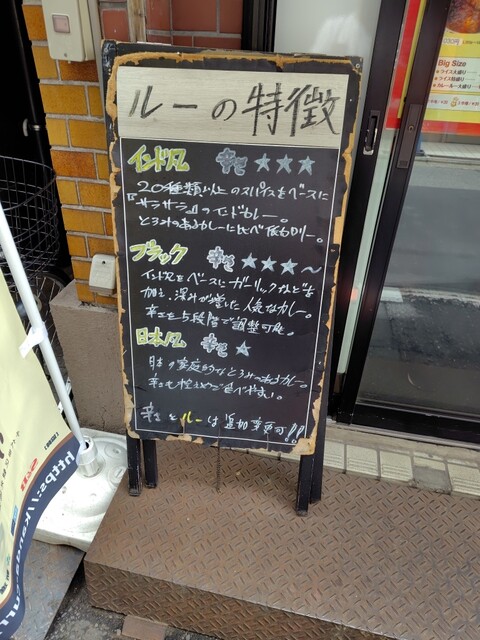 ルーの特徴
インド風 辛さ ★★★
20種類以上のスパイスをベースに
『サラサラ』のインドカレー。
とろみのあるカレーに比べ低カロリー。
ブラック 辛さ ★★★～
インド風をベースにガーリックなどを
加え、深みが増した人気なカレー。
辛さを5段階で調整可能。
日本風 辛さ ★
日本の家庭的なとろみのあるカレー。
辛さも控えめで食べやすい。
辛さとルーは追加変更可!!
Big Size
ライス大盛り
https://kanda-cur